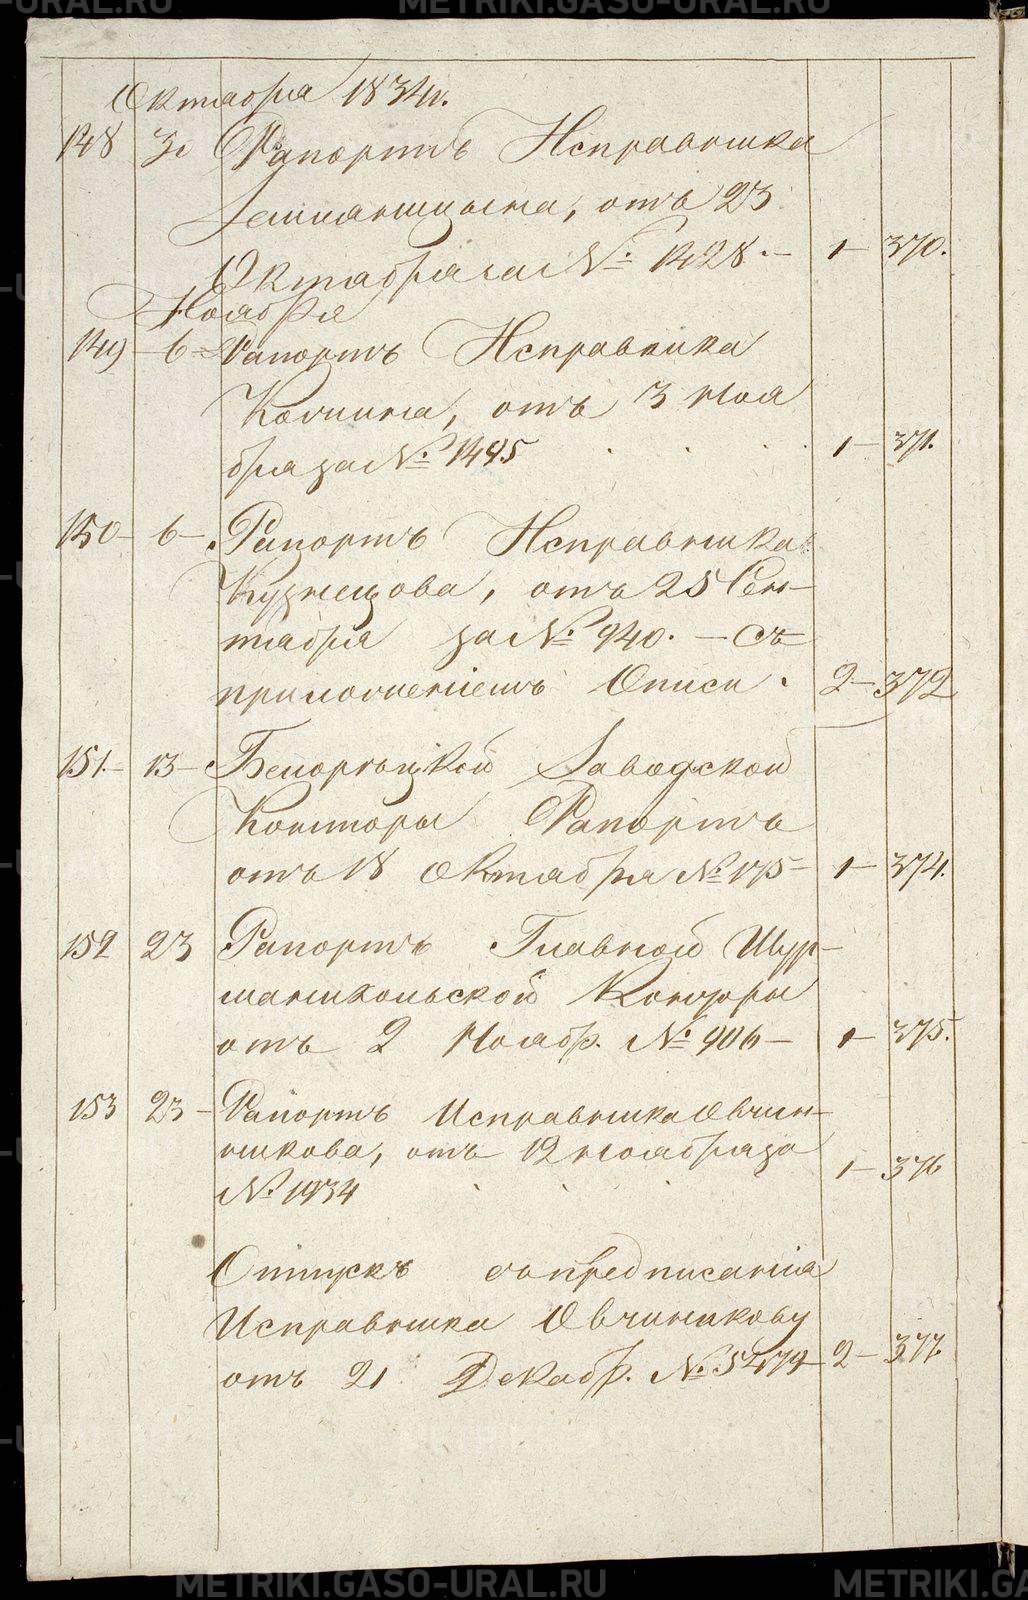 Октября 1834 г.
148 31 Рапортъ Исправника
Земляницына, отъ 23
Октября за № 1428. — 1 — 370.
Ноября
149 — 6 = Рапортъ Исправника
Колпина, отъ 3 Ноя
бря за № 1445 . . . 1 — 371.
150 — 6 — Рапортъ Исправника
Кузнецова, отъ 25 Сен-
тября за № 940. — съ
приложеніемъ Описи. 2 — 372
151. — 13 — Белорѣцкой Заводской
Конторы Рапортъ
отъ 18 Октября № 175 — 1 — 374.
152 23 Рапортъ Главной Шур-
маникольской Конторы
отъ 2 Ноябр. № 906 — 1 — 375.
153 23 — Рапортъ Исправника Овчин-
никова, отъ 12 Ноября за
№ 1934 . . . 1 — 376
Отпускъ съ предписанія
Исправника Овчиникову
отъ 21 Декабр. № 5479 — 2 — 377
METRIKI.GASO-URAL.RU